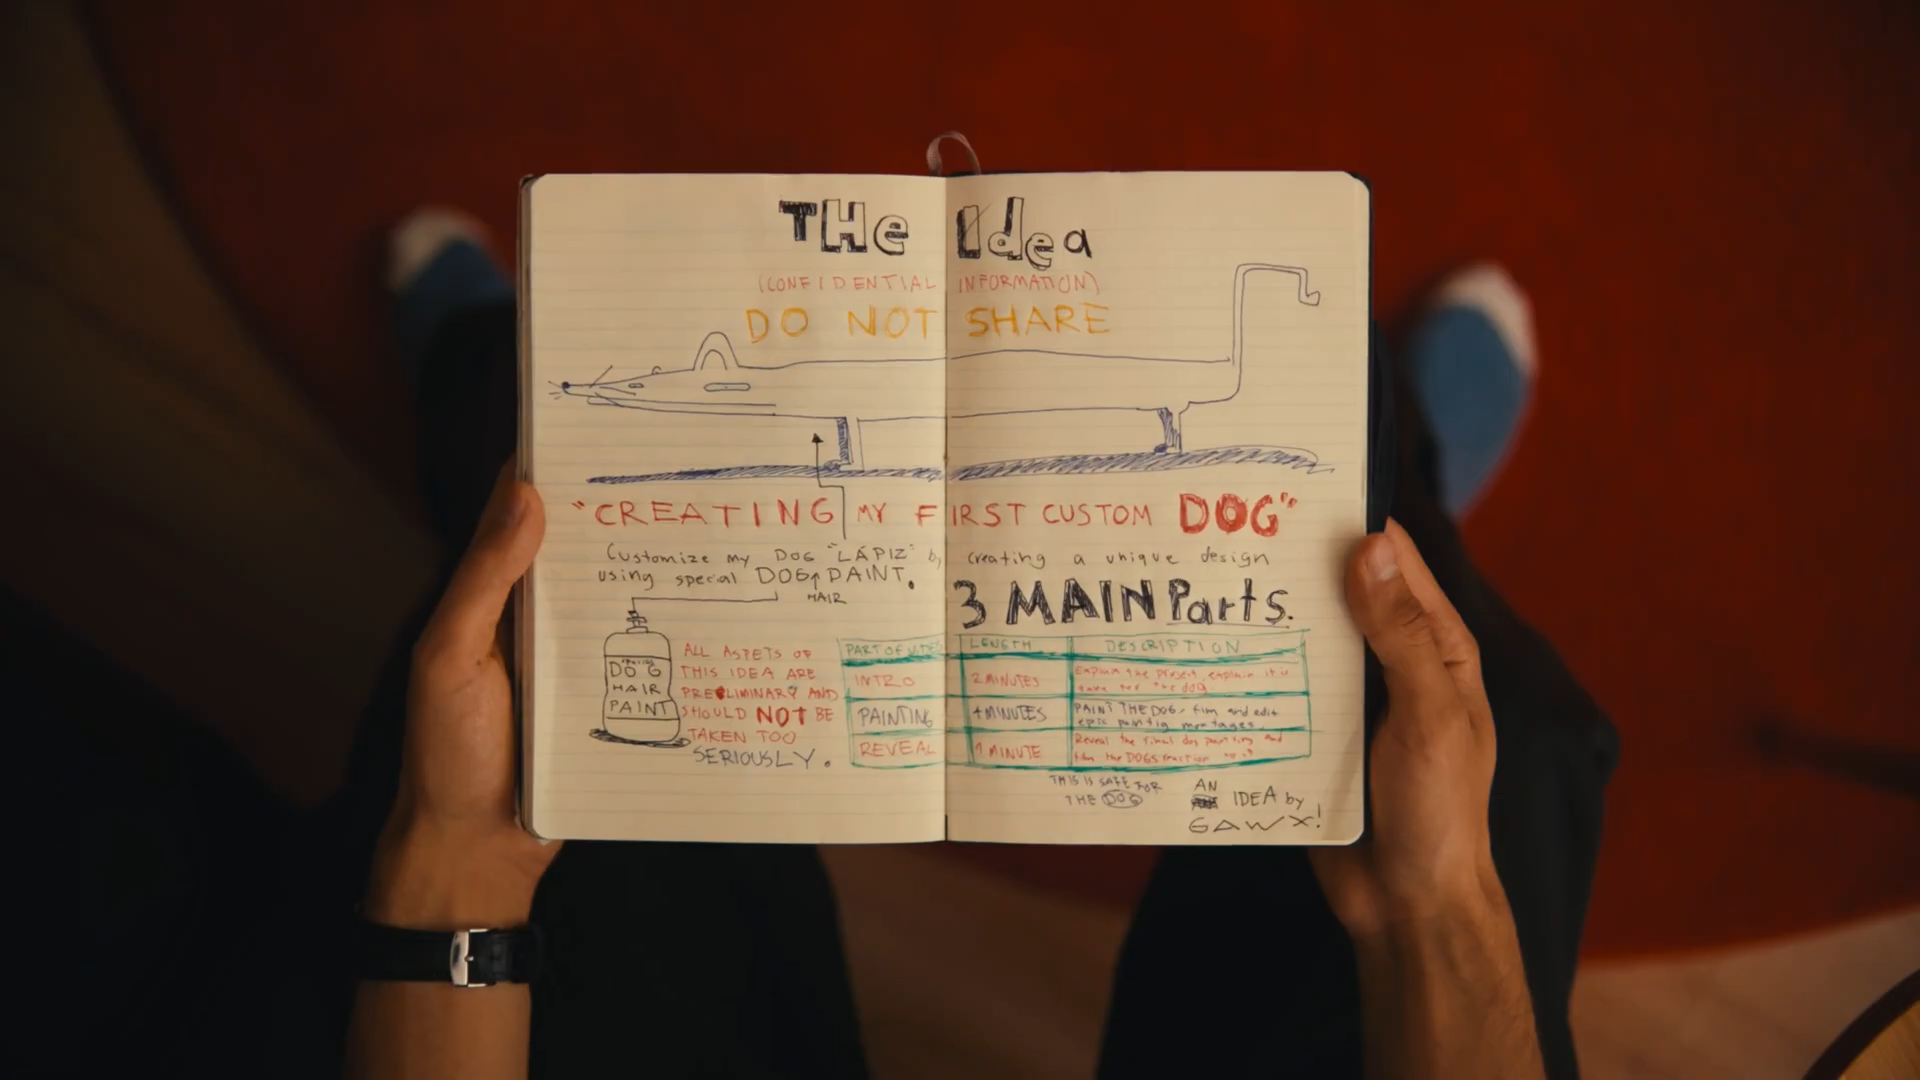 THe Idea
(CONFIDENTIAL INFORMATION)
DO NOT SHARE
"CREATING MY FIRST CUSTOM DOG"
Customize my DOG "LÁPIZ" by creating a unique design
using special DOG PAINT.
HAIR
3 MAIN Parts.
DOG
HAIR
PAINT
ALL ASPETS OF
THIS IDEA ARE
PRELIMINARY AND
SHOULD NOT BE
TAKEN TOO
SERIOUSLY.
PART OF VIDEO LENGTH DESCRIPTION
INTRO 2 MINUTES Explain the project, explain it is
safe for the dog.
PAINTING 4 MINUTES PAINT THE DOG, film and edit
epic paintig montages.
REVEAL 1 MINUTE Reveal the final dog painting and
film the DOGS reaction to it
THIS IS SAFE FOR
THE DOG
AN
IDEA by
GAWX!